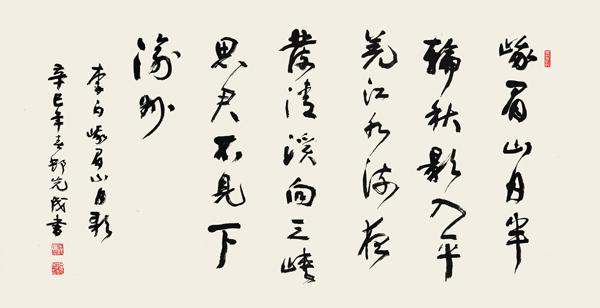 峨眉山月半
輪秋影入平
羌江水流夜
發清溪向三峽
思君不見下
渝州
李白峨眉山月歌
辛巳年春書